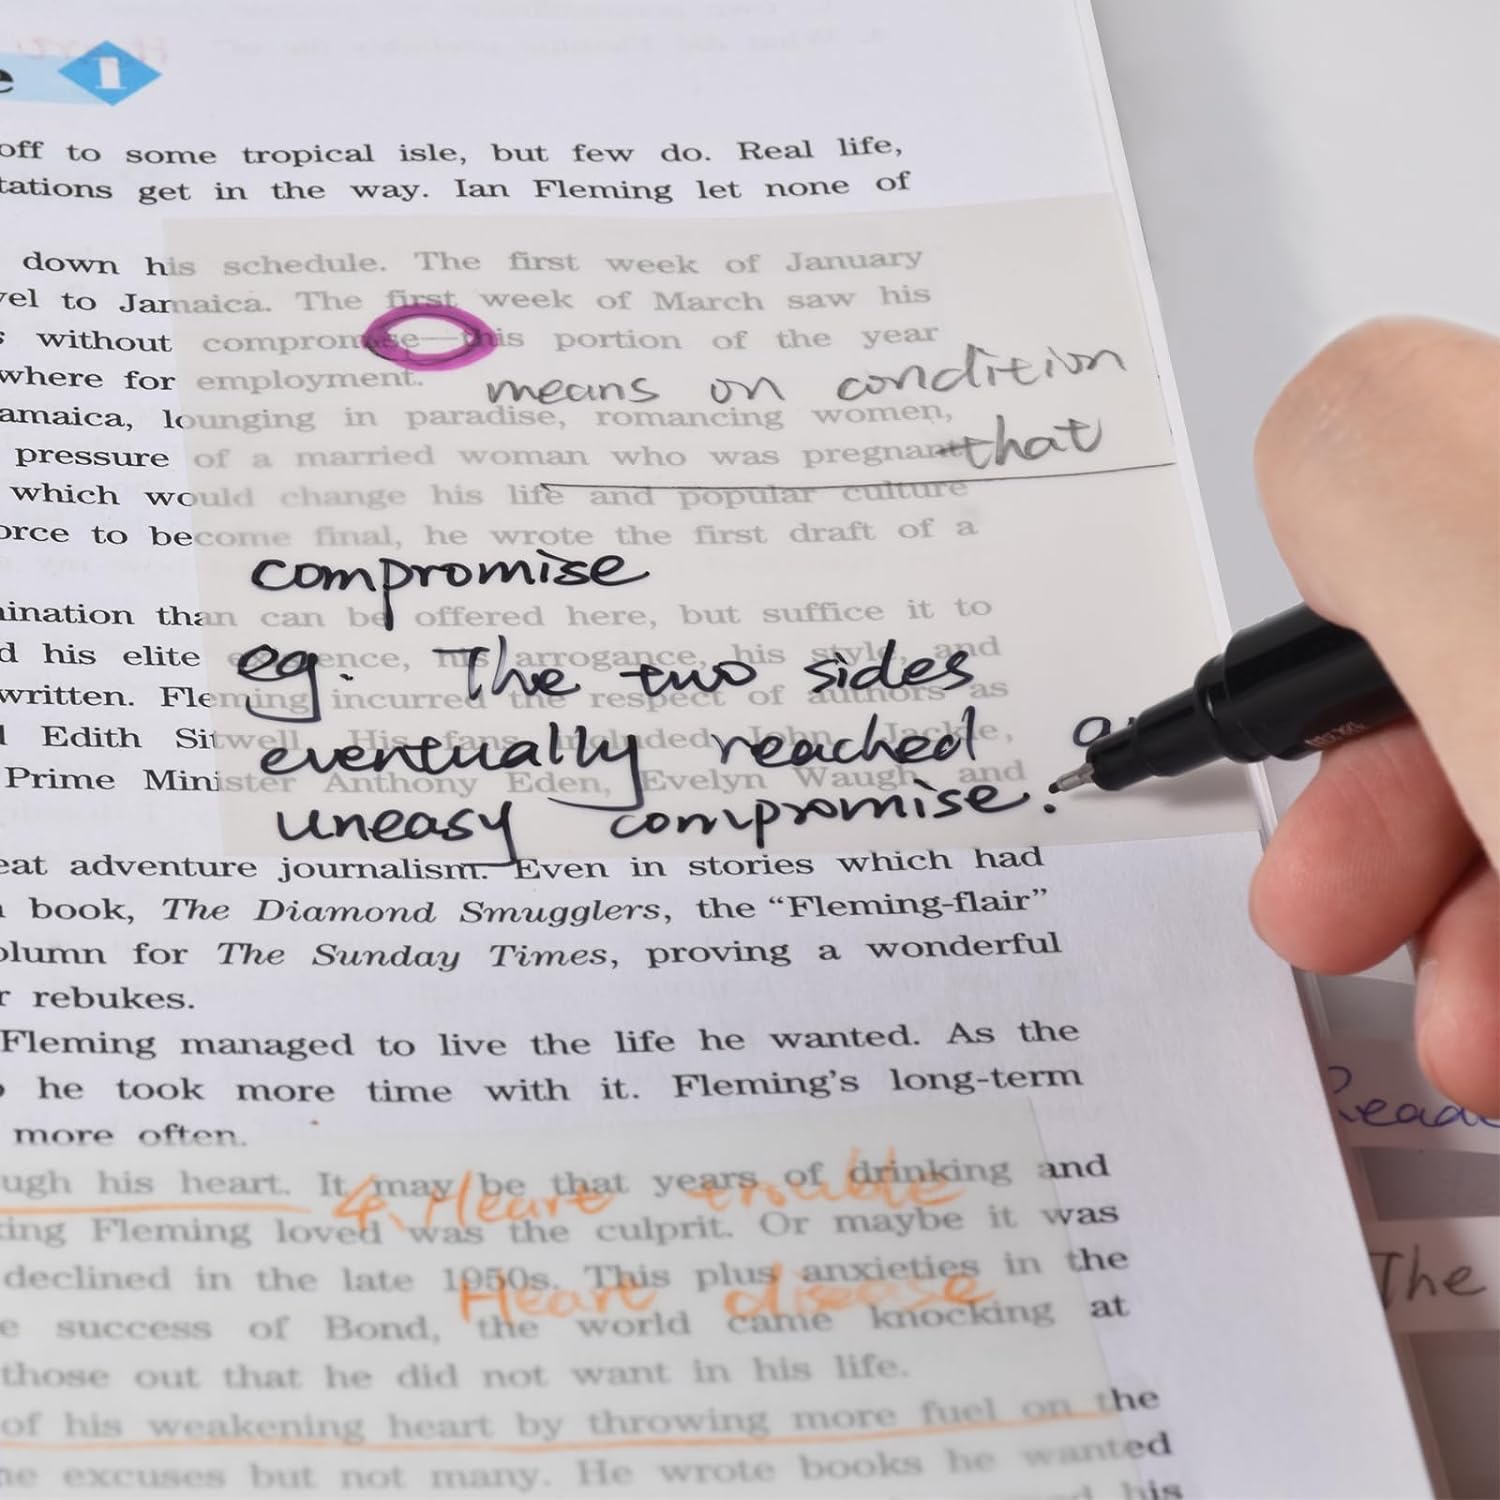 1
off to some tropical isle, but few do. Real life,
tations get in the way. Ian Fleming let none of
down his schedule. The first week of January
vel to Jamaica. The first week of March saw his
s without compromise—this portion of the year
where for employment.
means on condition
amaica, lounging in paradise, romancing women,
that
pressure of a married woman who was pregnant
which would change his life and popular culture
orce to become final, he wrote the first draft of a
compromise
mination than can be offered here, but suffice it to
d his elite his arrogance, his style, and
eg. The two sides
written. Fleming incurred the respect of authors as
l Edith Sitwell. His fans included John
eventually reached a
Prime Minister Anthony Eden, Evelyn Waugh, and
uneasy compromise.
eat adventure journalism. Even in stories which had
book, The Diamond Smugglers, the “Fleming-flair”
olumn for The Sunday Times, proving a wonderful
r rebukes.
Fleming managed to live the life he wanted. As the
he took more time with it. Fleming’s long-term
more often.
ugh his heart. It may be that years of drinking and
4. Heart trouble
king Fleming loved was the culprit. Or maybe it was
declined in the late 1950s. This plus anxieties in the
Heart disease
e success of Bond, the world came knocking at
those out that he did not want in his life.
of his weakening heart by throwing more fuel on the
ne excuses but not many. He wrote books he wanted
his
Read
The